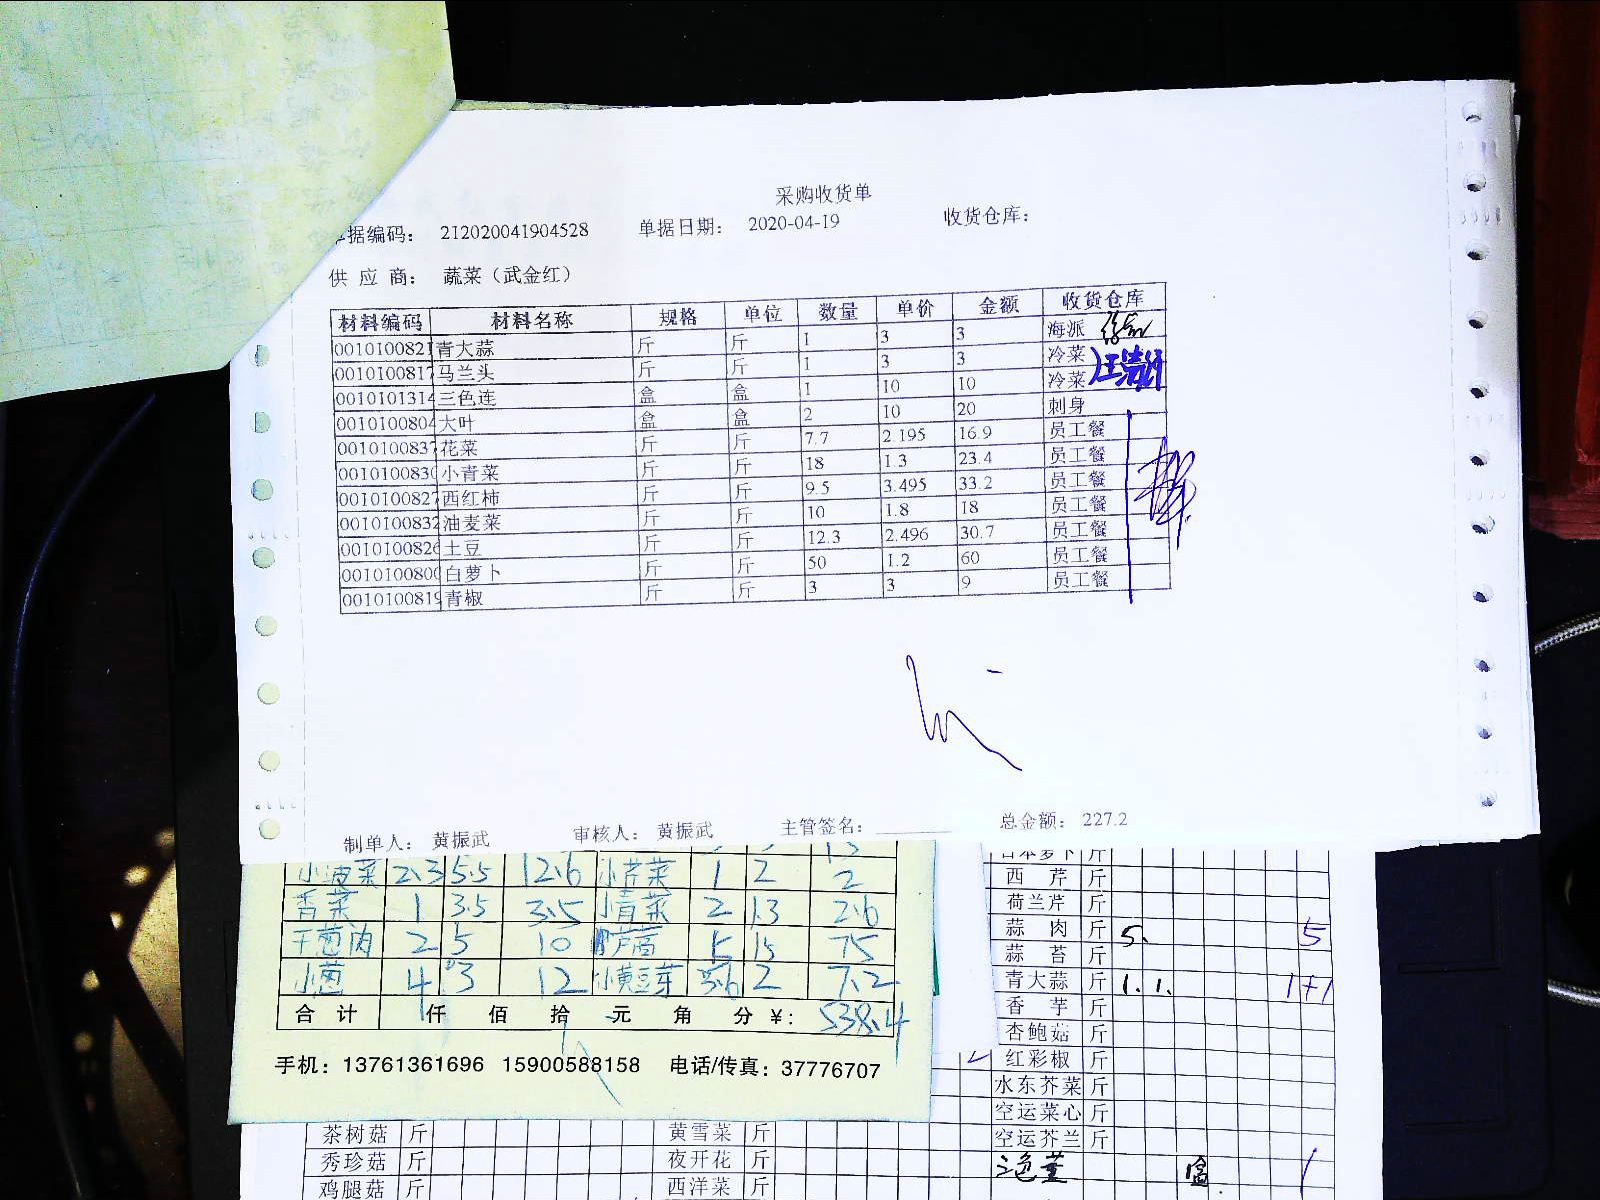 采购收货单
单据编码： 212020041904528 单据日期： 2020-04-19 收货仓库：
供 应 商： 蔬菜（武金红）
材料编码 材料名称 规格 单位 数量 单价 金额 收货仓库
0010100821 青大蒜 斤 斤 1 3 3 海派
0010100817 马兰头 斤 斤 1 3 3 冷菜
0010101314 三色连 盒 盒 1 10 10 冷菜
0010100804 大叶 盒 盒 2 10 20 刺身
0010100837 花菜 斤 斤 7.7 2.195 16.9 员工餐
0010100830 小青菜 斤 斤 18 1.3 23.4 员工餐
0010100827 西红柿 斤 斤 9.5 3.495 33.2 员工餐
0010100832 油麦菜 斤 斤 10 1.8 18 员工餐
0010100826 土豆 斤 斤 12.3 2.496 30.7 员工餐
0010100800 白萝卜 斤 斤 50 1.2 60 员工餐
0010100819 青椒 斤 斤 3 3 9 员工餐
制单人： 黄振武 审核人： 黄振武 主管签名： 总金额： 227.2
小菠菜 2.3 5.5 12.6 小芹菜 1 2 2
香菜 1 3.5 3.5 小青菜 2 1.3 2.6
干葱肉 2 5 10 芦笋 5 15 75
小葱 4 3 12 小黄豆芽 3.6 2 7.2
合计 仟 佰 拾 元 角 分 ¥： 538.4
手机：13761361696 15900588158 电话/传真：37776707
日本萝卜 斤
西芹 斤
荷兰芹 斤
蒜肉 斤 5. 5
蒜苔 斤
青大蒜 斤 1. 1. 1+1
香芋 斤
杏鲍菇 斤
红彩椒 斤
水东芥菜 斤
空运菜心 斤
空运芥兰 斤
茶树菇 斤 黄雪菜 斤
秀珍菇 斤 夜开花 斤
鸡腿菇 斤 西洋菜 斤